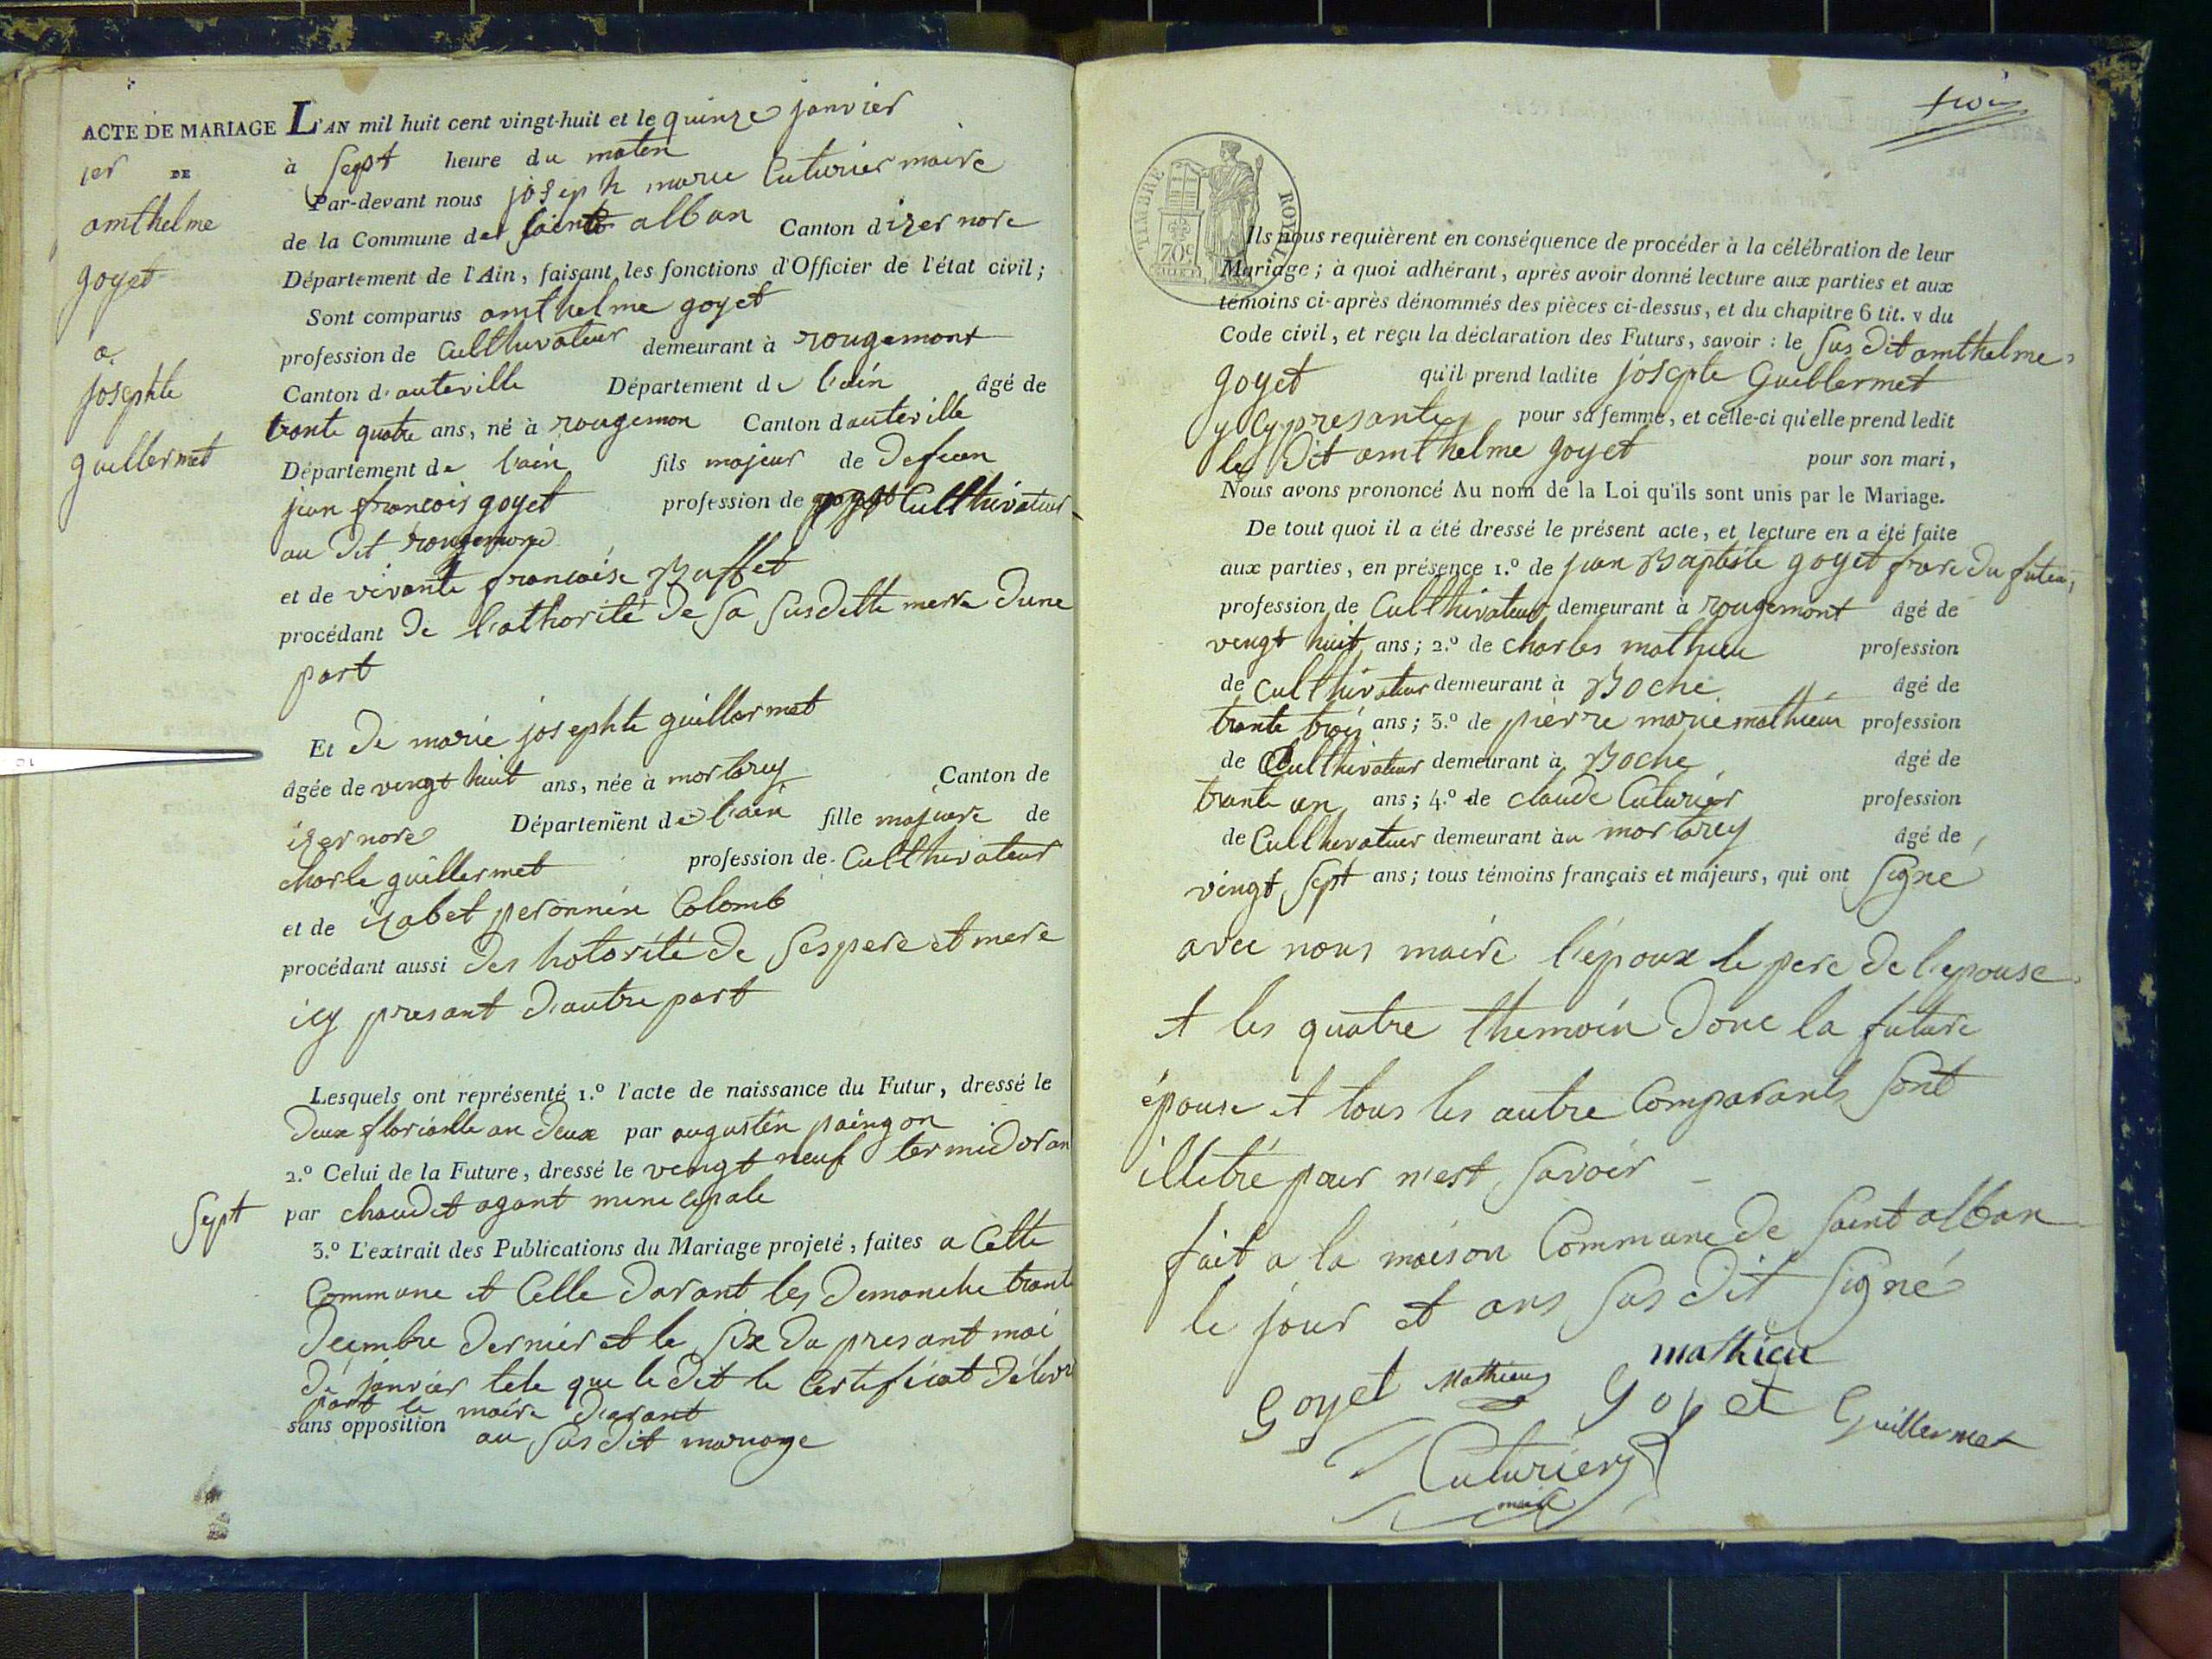 ACTE DE MARIAGE L'AN mil huit cent vingt-huit et le quinze janvier
1er DE
amthelme
goyet
a
josephte
guillermet
à Sept heure du maten
Par-devant nous joseph marie Cuturier maire
de la Commune de saint alban Canton dizernore
Département de l'Ain, faisant les fonctions d'Officier de l'état civil;
Sont comparus amthelme goyet
profession de Culthuvateur demeurant à rougemont
Canton d'auteville Département de l'ain âgé de
trante quatre ans, né à rougemon Canton dauteville
Département de l'ain fils majeur de defuen
jean francois goyet profession de Culthivateur
au dit rougemond
et de vivante francoise Buffet
procédant de l'athorité de sa susditte merre dune
part
Et de marie josephte guillermet
âgée de vengt huit ans, née à mortarey Canton de
izernore Département de l'ain fille majeure de
charle guillermet profession de Culthivateur
et de izabet peronnine Colomb
procédant aussi des hotorité de ses pere et mere
icy presant d'autre part
Lesquels ont représenté 1.º l'acte de naissance du Futur, dressé le
deux florialle an deux par augusten paingon
2.º Celui de la Future, dressé le vengt neuf termidor an
Sept par chaudet agant menicipale
3.º L'extrait des Publications du Mariage projeté, faites a Cette
Commune et Celle darant les demanche trante
decembre dernier et le six du presant moi
de janvier tele que le dit le Certificat délivré
part le maire darant
sans opposition au susdit mariage
trois
TIMBRE ROYAL
70c
Ils nous requièrent en conséquence de procéder à la célébration de leur
Mariage; à quoi adhérant, après avoir donné lecture aux parties et aux
témoins ci-après dénommés des pièces ci-dessus, et du chapitre 6 tit. v du
Code civil, et reçu la déclaration des Futurs, savoir: le susdit amthelme
goyet qu'il prend ladite josepte Guillermet
y Cy presante pour sa femme, et celle-ci qu'elle prend ledit
le dit amthelme goyet pour son mari,
Nous avons prononcé Au nom de la Loi qu'ils sont unis par le Mariage.
De tout quoi il a été dressé le présent acte, et lecture en a été faite
aux parties, en présence 1.º de jean Baptiste goyet frare du futeur,
profession de Culthivateur demeurant à rougemont âgé de
vengt huit ans; 2.º de charles mathieu profession
de Culthivateur demeurant à Boche âgé de
trante trois ans; 3.º de pierre marie mathieu profession
de Culthivateur demeurant à Boche âgé de
trante un ans; 4.º de claude Cuturier profession
de Culthevateur demeurant àu mortarey âgé de
vingt sept ans; tous témoins français et majeurs, qui ont signe
avec nous maire l'époux le pere de l'epouse
et les quatre themoin donc la future
épouse et tous les autre Comparants sont
illetré pour n'est savoir
fait a la maison Commune de saint alban
le jour et ans susdit signé
Goyet Mathieu mathieu
Goyet Guillermet
Cuturier
maire